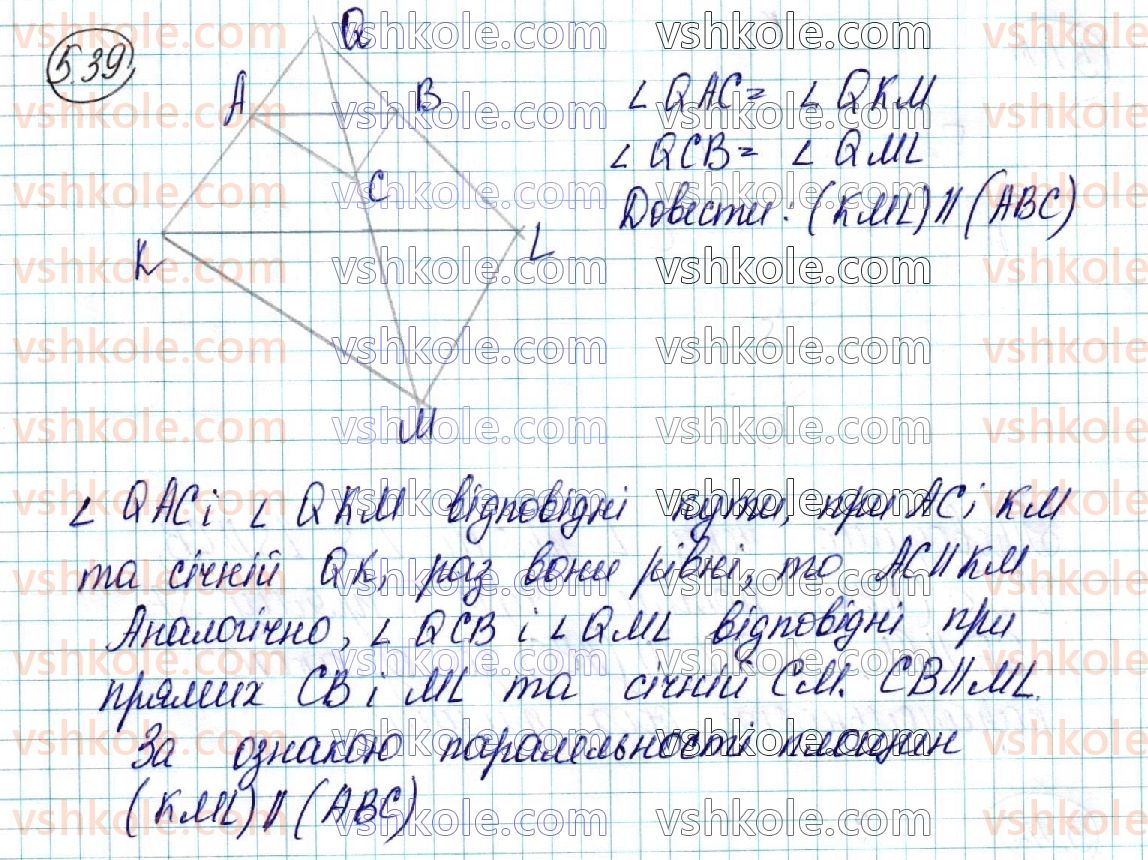 5.39
Q
A
B
C
K
L
M
∠ QAC = ∠ QKM
∠ QCB = ∠ QML
Довести: (KML) || (ABC)
∠ QAC і ∠ QKM відповідні кути, при AC і KM
та січній QK, раз вони рівні, то AC || KM
Аналогічно, ∠ QCB і ∠ QML відповідні при
прямих CB і ML та січній CM. CB || ML.
За ознакою паралельності площин
(KML) || (ABC)
vshkole.com